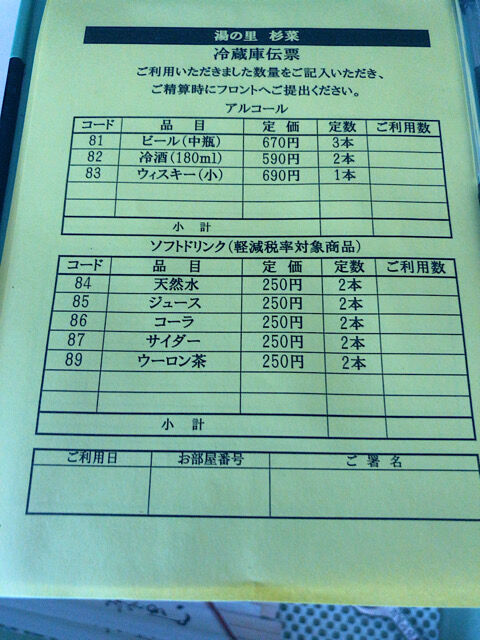 湯の里 杉菜
冷蔵庫伝票
ご利用いただきました数量をご記入いただき、
ご精算時にフロントへご提出ください。
アルコール
コード 品目 定価 定数 ご利用数
81 ビール(中瓶) 670円 3本
82 冷酒(180ml) 590円 2本
83 ウィスキー(小) 690円 1本
小計
ソフトドリンク(軽減税率対象商品)
コード 品目 定価 定数 ご利用数
84 天然水 250円 2本
85 ジュース 250円 2本
86 コーラ 250円 2本
87 サイダー 250円 2本
89 ウーロン茶 250円 2本
小計
ご利用日 お部屋番号 ご署名